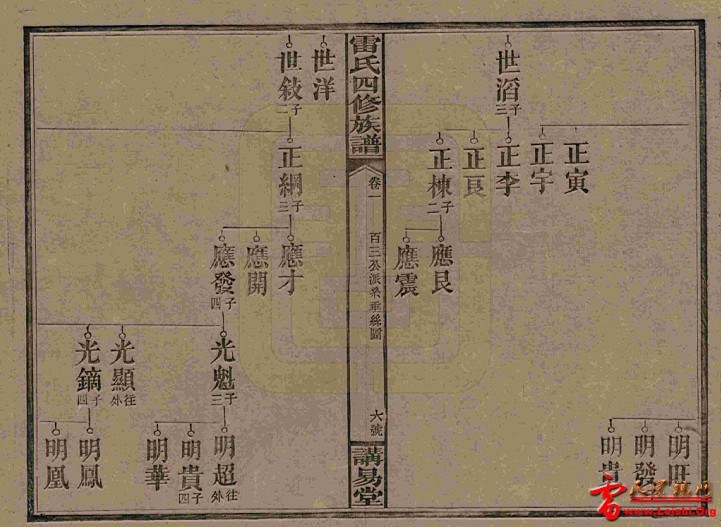 世滔
三子
正寅
正宇
正李
正艮
正棟
二子
應艮
應震
明旺
明發
明貴
雷氏四修族譜
卷一
百三公派系垂絲圖
六號
講易堂
世洋
世敍
二子
正綱
三子
應才
應開
應發
四子
光魁
三子
光顯
外往
光鏑
四子
明超
外往
明貴
四子
明華
明鳳
明凰
www.Leishi.Org